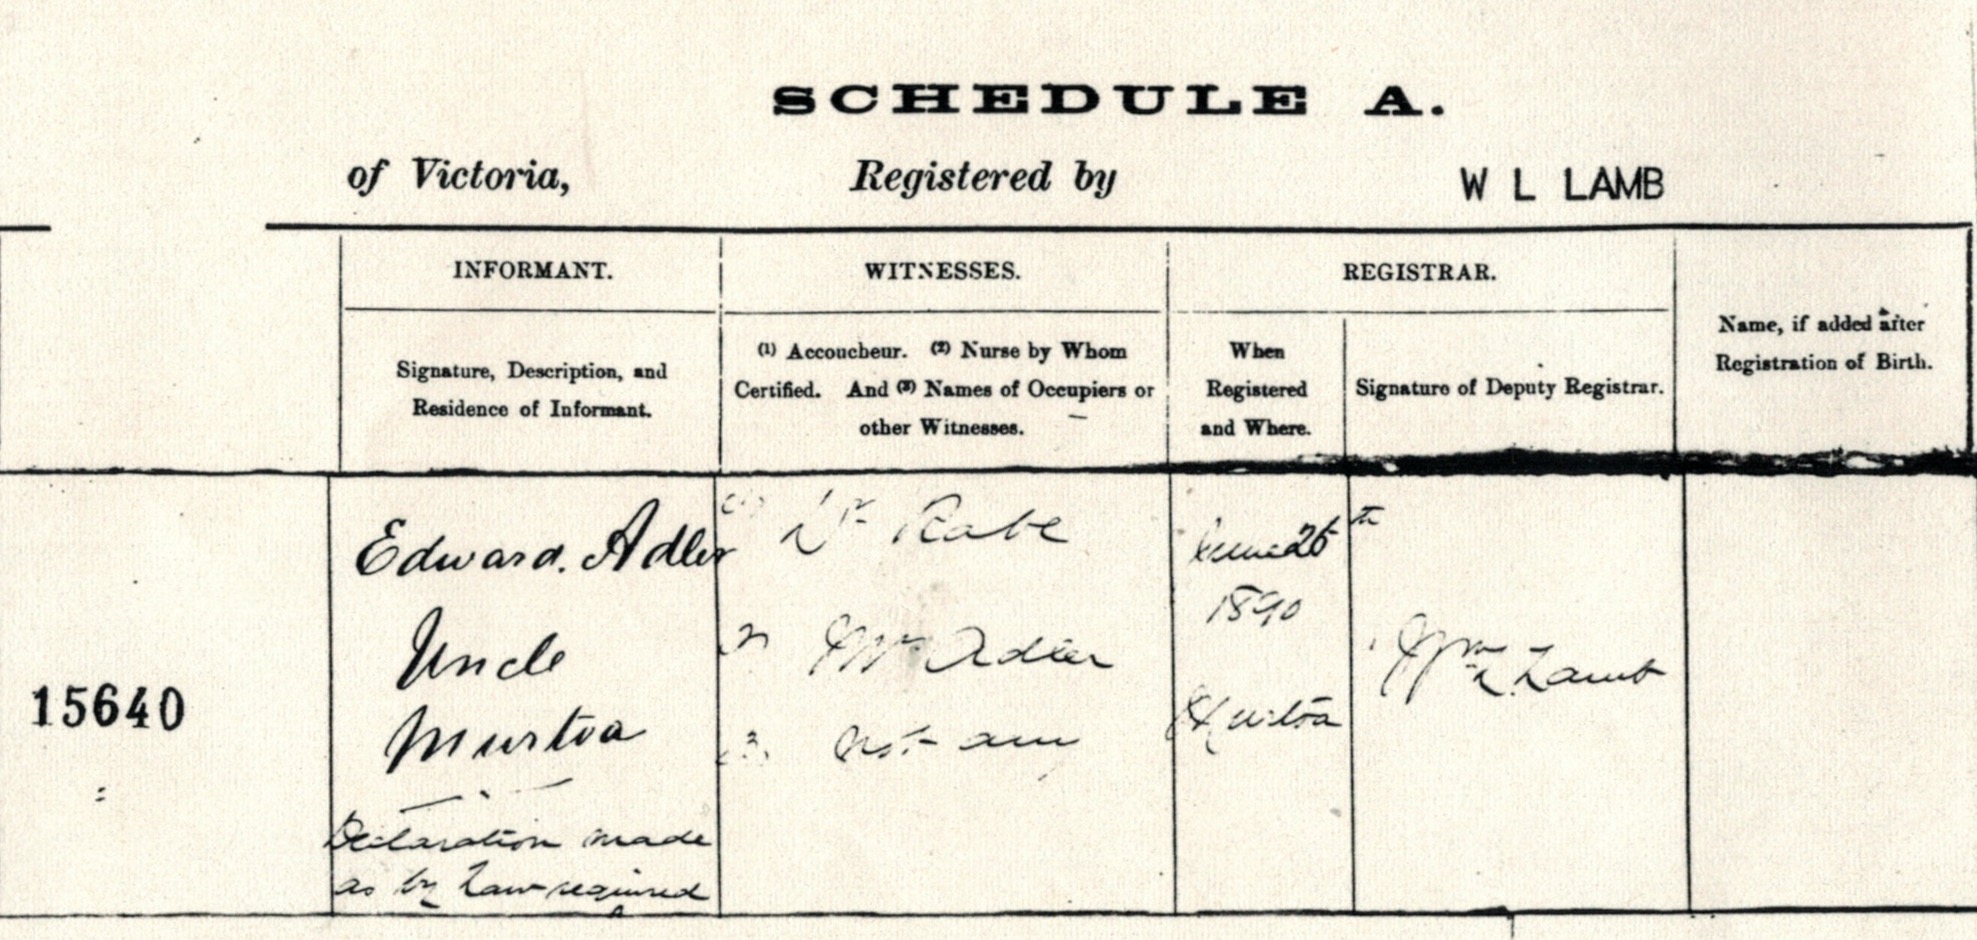 SCHEDULE A.
of Victoria, Registered by W L LAMB
INFORMANT. WITNESSES. REGISTRAR.
Name, if added after
Registration of Birth.
Signature, Description, and
Residence of Informant.
(1) Accoucheur. (2) Nurse by Whom
Certified. And (3) Names of Occupiers or
other Witnesses.
When
Registered
and Where.
Signature of Deputy Registrar.
15640
Edward. Adler
Uncle
Murtoa
Declaration made
as by Law required
(1) Dr Rabe
(2) Adler
(3)
June 26th
1890
Murtoa
Wm L. Lamb